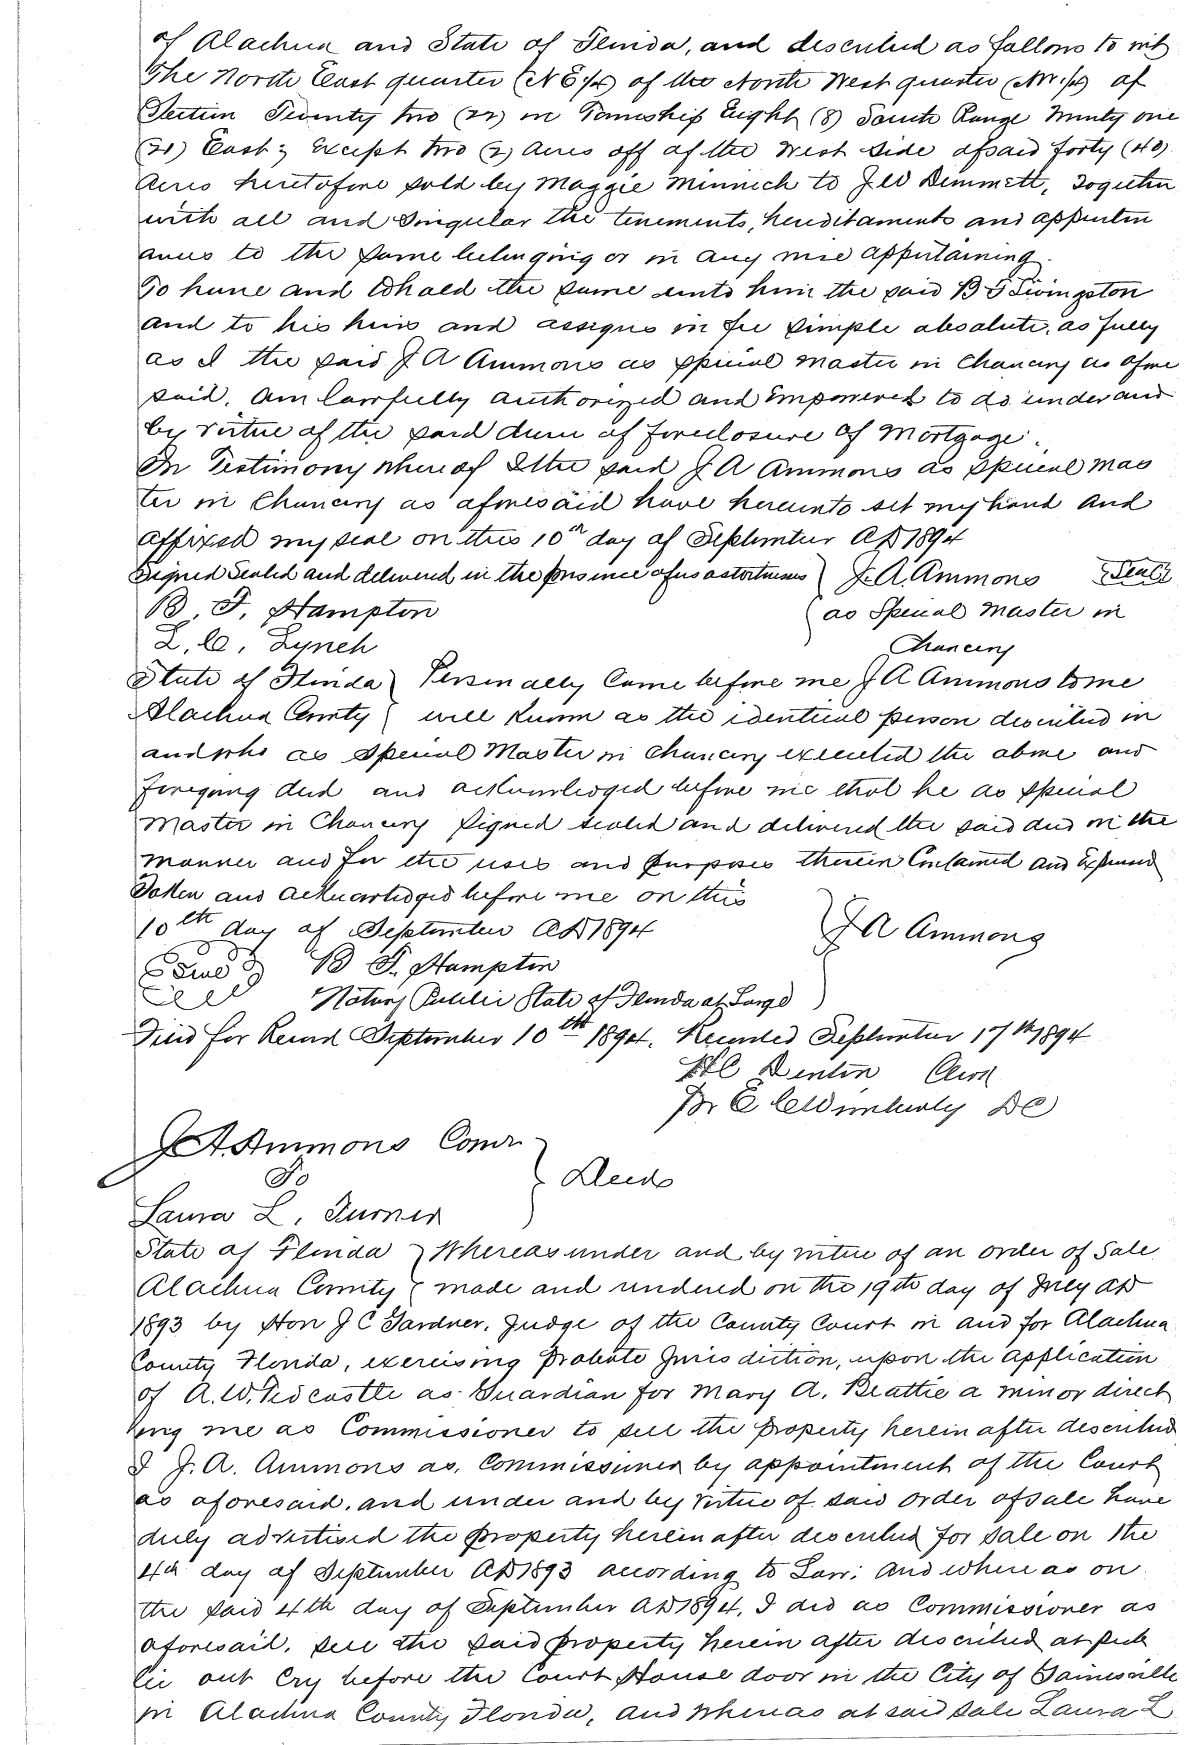 of Alachua and State of Florida, and described as follows to wit
The North East quarter (NE1/4) of the North West quarter (NW1/4) of
Section Twenty two (22) in Township Eight (8) South Range Twenty one
(21) East; Except two (2) Acres off of the West side of said forty (40)
Acres heretofore sold by Maggie Minnich to J W Dimmett, Together
with all and singular the tenements, hereditaments and appurten
ances to the same belonging or in any wise appertaining.
To have and to hold the same unto him the said B F Livingston
and to his heirs and assigns in fee simple absolute, as fully
as I the said J A Ammons as special master in Chancery as afore
said, am lawfully authorized and Empowered to do under and
by virtue of the said decree of foreclosure of Mortgage.
In Testimony whereof I the said J A Ammons as special mas
ter in Chancery as aforesaid have hereunto set my hand and
affixed my seal on this 10th day of September AD 1894
Signed Sealed and delivered in the presence of us as witnesses } J. A. Ammons {Seal}
B. F. Hampton } as Special Master in
L. C. Lynch Chancery
State of Florida } Personally Came before me J A Ammons to me
Alachua County } well known as the identical person described in
and who as special Master in Chancery executed the above and
foregoing deed and acknowledged before me that he as special
Master in Chancery signed sealed and delivered the said deed in the
manner and for the uses and purposes therein Contained and Expressed
Taken and acknowledged before me on this
10th day of September AD 1894 } J A Ammons
{Seal} B F. Hampton
Notary Public State of Florida at Large }
Filed for Record September 10th 1894. Recorded September 17th 1894
H C Denton Clerk
Pr E C Wimberly DC
J. A. Ammons Comr }
To } Deeds
Laura L. Turner
State of Florida } Whereas under and by virtue of an order of Sale
Alachua County { made and rendered on the 19th day of July AD
1893 by Hon J C Gardner, Judge of the County Court in and for Alachua
County Florida, exercising Probate Jurisdiction, upon the application
of A. W. Tedcastle as Guardian for Mary A. Beattie a minor direct
ing me as Commissioner to sell the property herein after described
I J. A. Ammons as Commissioner by appointment of the Court
as aforesaid, and under and by virtue of said order of sale have
duly advertised the property herein after described for sale on the
4th day of September AD 1893 according to Law: And where as on
the said 4th day of September AD 1894, I did as Commissioner as
aforesaid, sell the said property herein after described at pub
lic out Cry before the Court House door in the City of Gainesville
in Alachua County Florida, and whereas at said sale Laura L